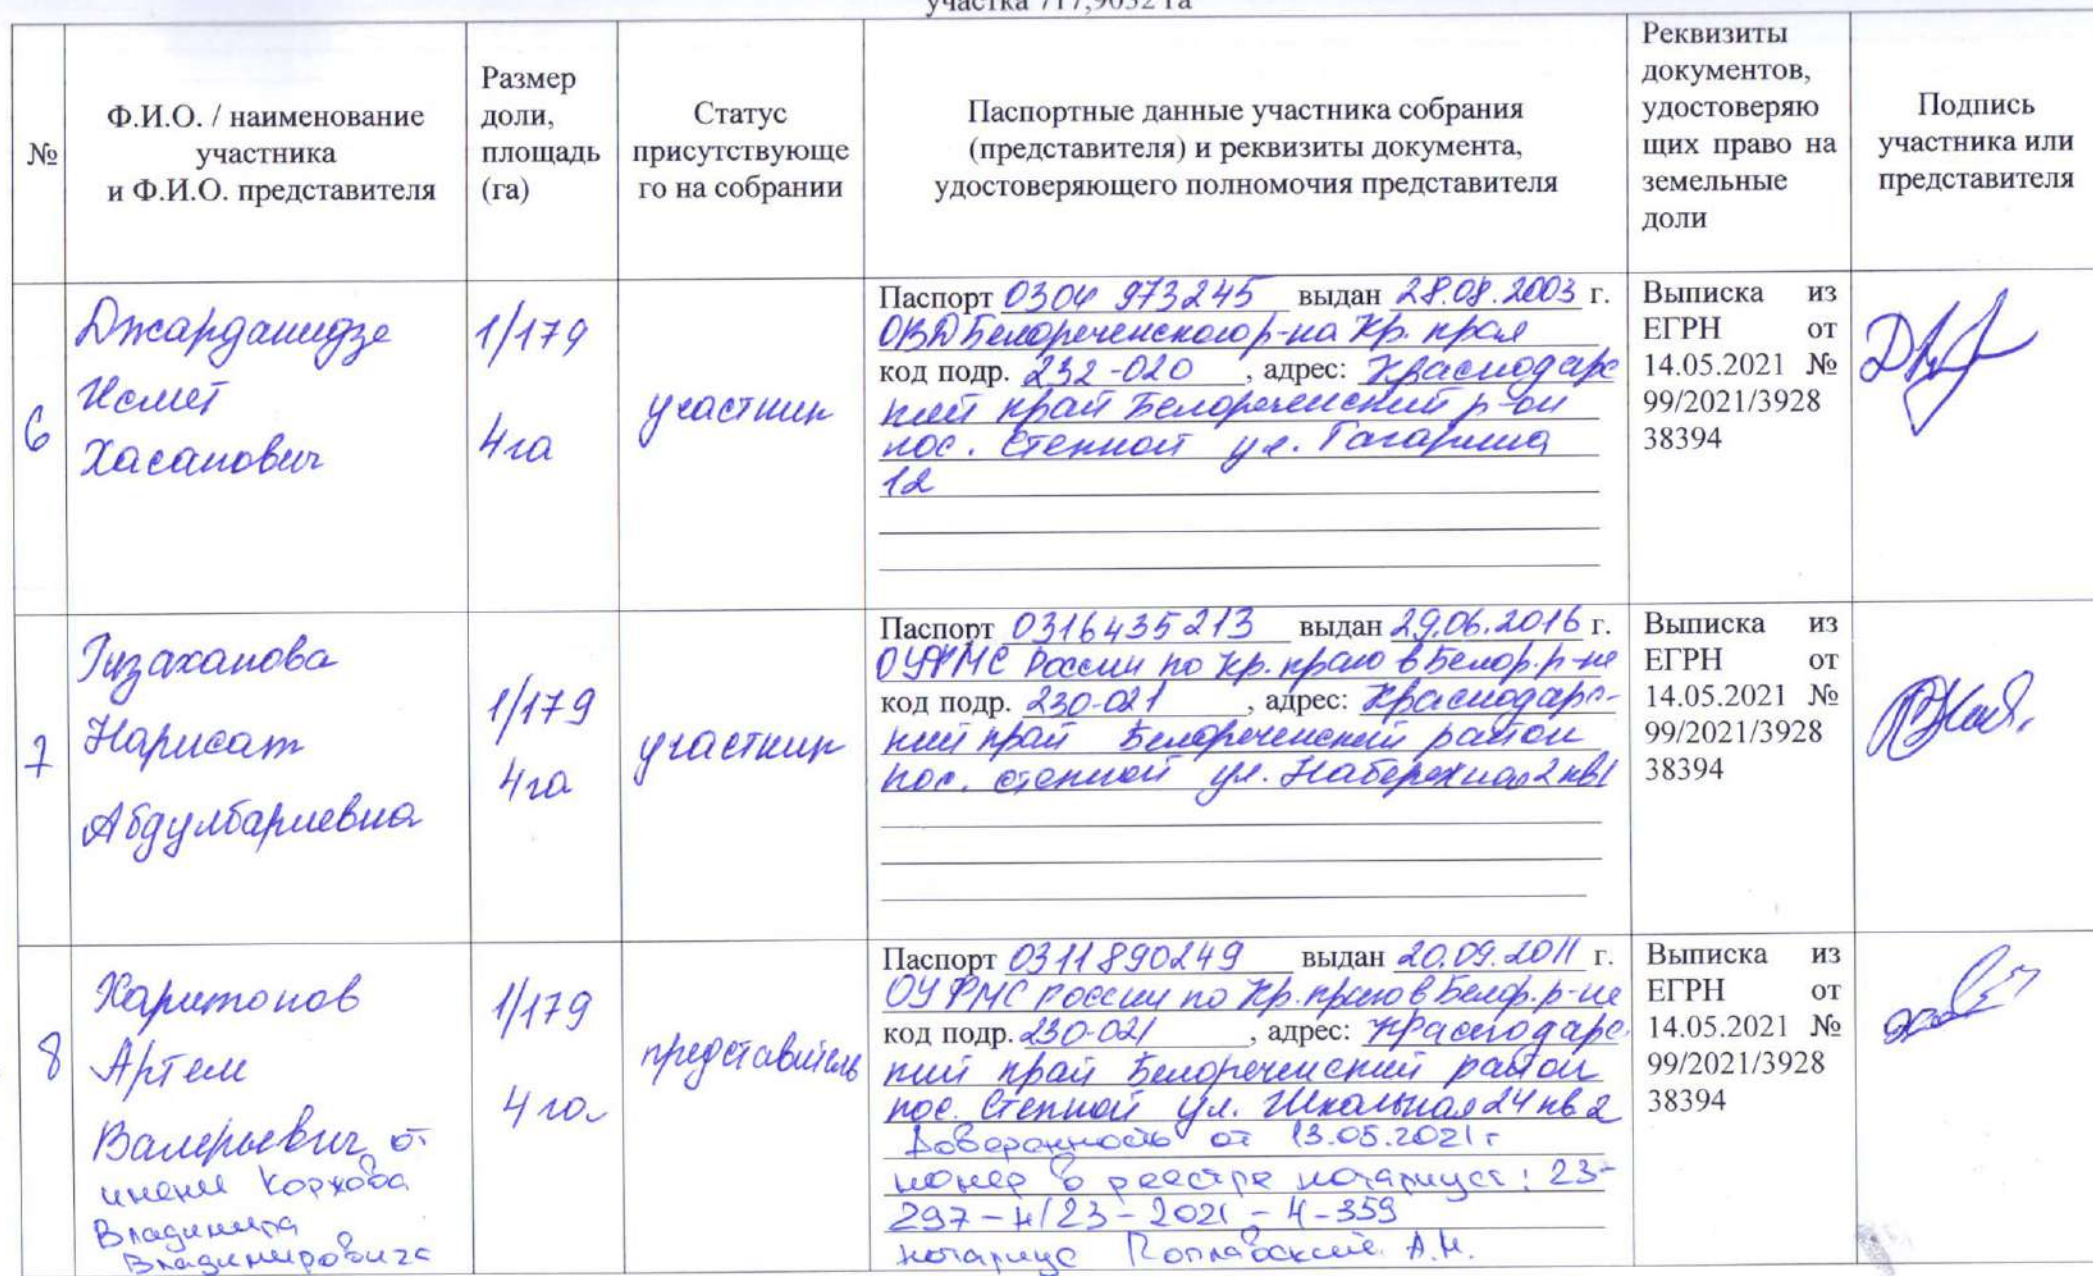 участка 717,9032 га
№
Ф.И.О. / наименование
участника
и Ф.И.О. представителя
Размер
доли,
площадь
(га)
Статус
присутствующе
го на собрании
Паспортные данные участника собрания
(представителя) и реквизиты документа,
удостоверяющего полномочия представителя
Реквизиты
документов,
удостоверяю
щих право на
земельные
доли
Подпись
участника или
представителя
6
Джарданидзе
Исмет
Хасанович
1/179
4га
участник
Паспорт 0304 973245 выдан 28.08.2003 г.
ОВД Белореченского р-на Кр. края
код подр. 232-020, адрес: Краснодарс
кий край Белореченский р-он
пос. Степной ул. Гагарина
12
Выписка из
ЕГРН от
14.05.2021 №
99/2021/3928
38394
7
Гызаханова
Нарисат
Абдулбариевна
1/179
4га
участник
Паспорт 0316435213 выдан 29.06.2016 г.
ОУФМС России по Кр. краю в Белор. р-не
код подр. 230-021, адрес: Краснодарс-
кий край Белореченский район
пос. степной ул. Набережная 2 кв1
Выписка из
ЕГРН от
14.05.2021 №
99/2021/3928
38394
8
Харитонов
Артем
Валерьевич от
имени Коржова
Владимира
Владимировича
1/179
4 га
представитель
Паспорт 0311890249 выдан 20.09.2011 г.
ОУФМС России по Кр. краю в Белор. р-не
код подр. 230-021, адрес: Краснодарс
кий край Белореченский район
пос. Степной ул. Школьная 24 кв 2
Доверенность от 13.05.2021г
номер в реестре нотариуса: 23-
297-н/23-2021-4-359
нотариус Поплавский А.Н.
Выписка из
ЕГРН от
14.05.2021 №
99/2021/3928
38394